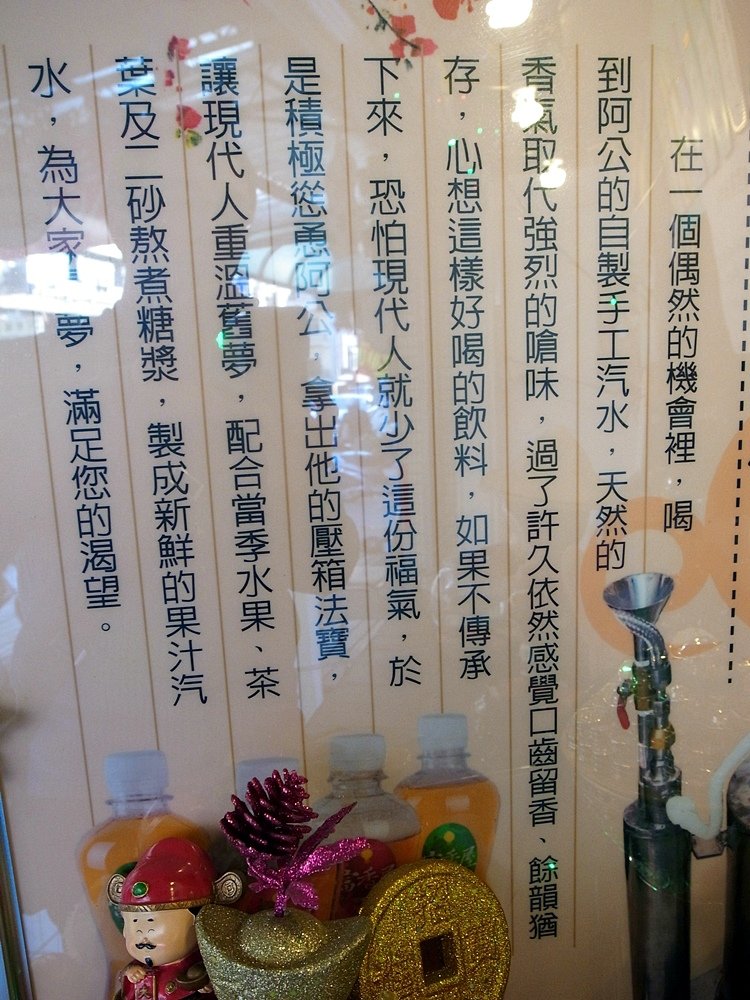 在一個偶然的機會裡，喝
到阿公的自製手工汽水，天然的
香氣取代強烈的嗆味，過了許久依然感覺口齒留香、餘韻猶
存，心想這樣好喝的飲料，如果不傳承
下來，恐怕現代人就少了這份福氣，於
是積極慫恿阿公，拿出他的壓箱法寶，
讓現代人重溫舊夢，配合當季水果、茶
葉及二砂熬煮糖漿，製成新鮮的果汁汽
水，為大家夢，滿足您的渴望。